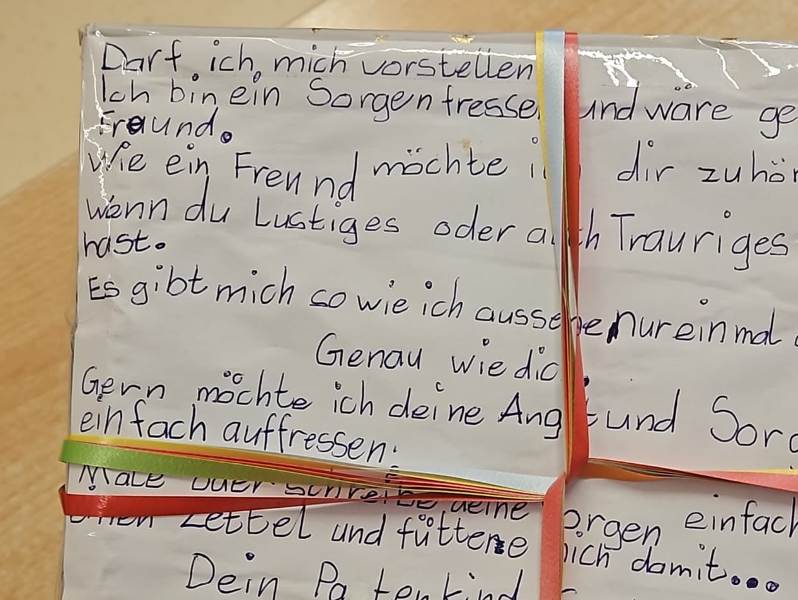 Darf ich mich vorstellen
Ich bin ein Sorgenfresse und wäre ge
Fraund.
Wie ein Freund möchte i dir zuhör
wenn du Lustiges oder auch Trauriges
hast.
Es gibt mich so wie ich aussehe nur einmal.
Genau wie dic
Gern möchte ich deine Ang t und Sorg
einfach auffressen.
Male oder schreibe deine orgen einfach
einen Zettel und füttere mich damit...
Dein Patenkind